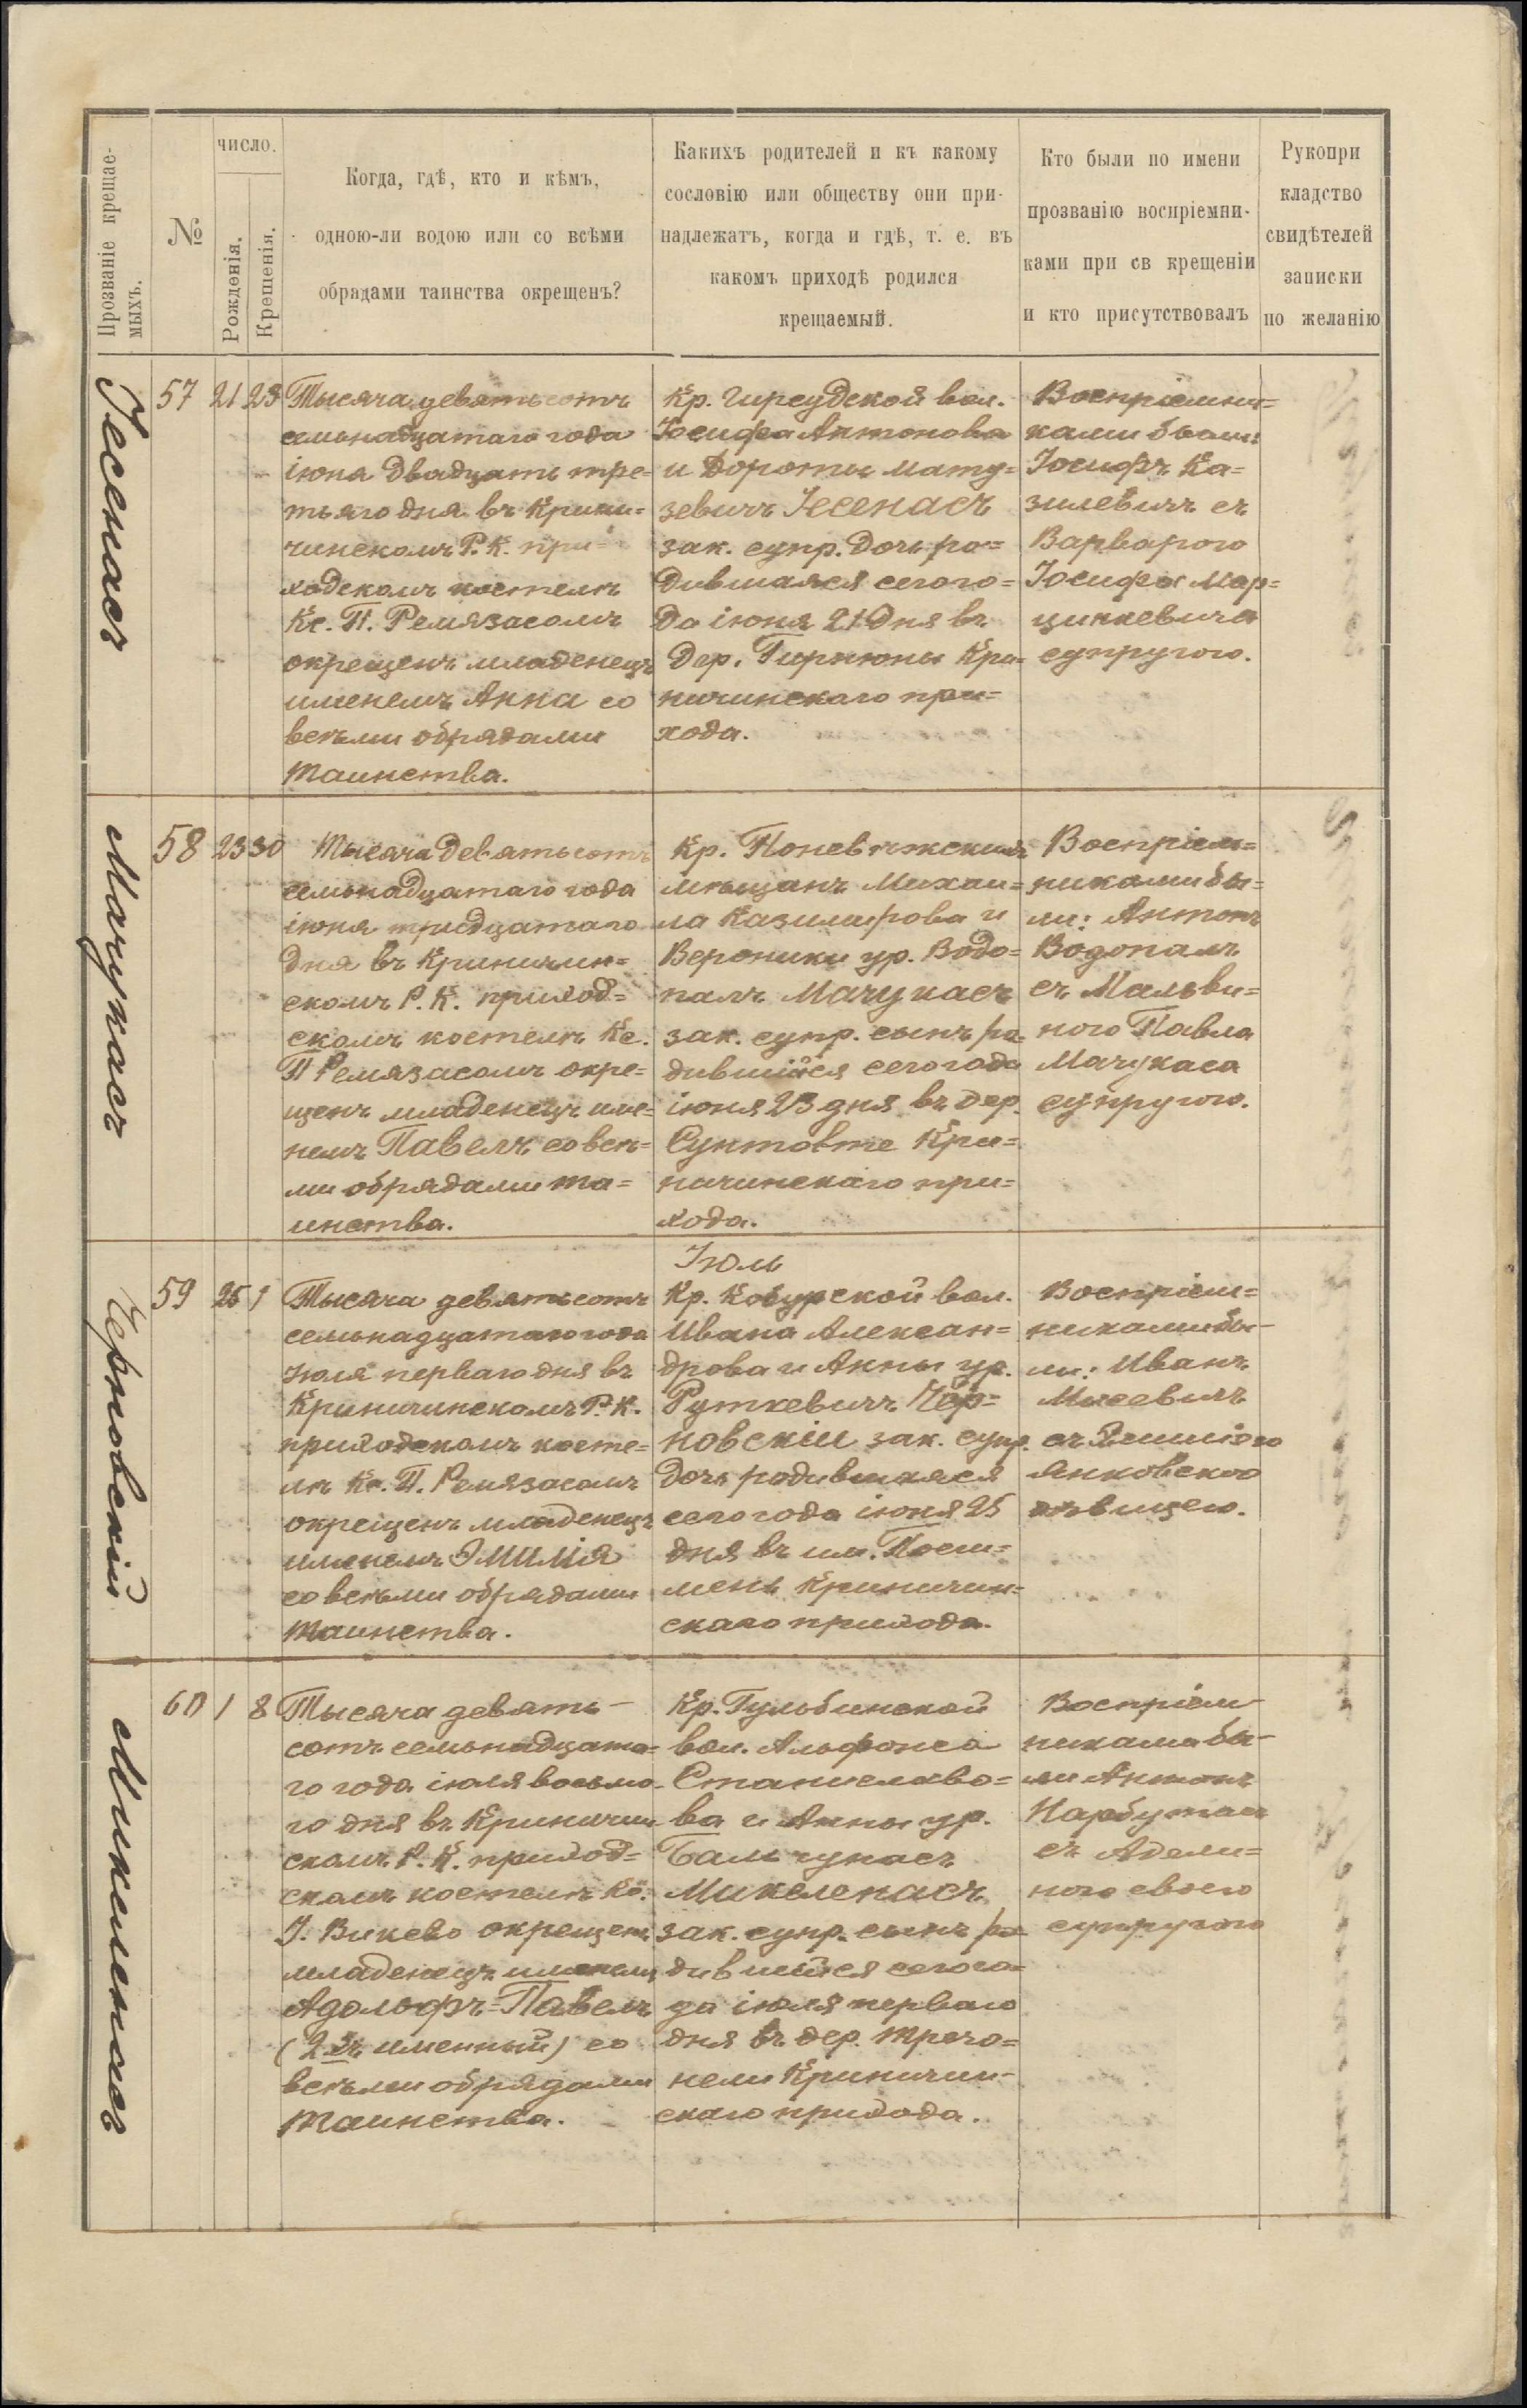 Прозваніе крещае-
мыхъ.
№
число.
Рожденія.
Крещенія.
Когда, гдѣ, кто и кѣмъ,
одною-ли водою или со всѣми
обрядами таинства окрещенъ?
Какихъ родителей и къ какому
сословію или обществу они при-
надлежатъ, когда и гдѣ, т. е. въ
какомъ приходѣ родился
крещаемый.
Кто были по имени
прозванію воспріемни-
ками при св крещеніи
и кто присутствовалъ
Рукопри
кладство
свидѣтелей
записки
по желанію
Іесенасъ
57 21 23
Тысяча девятьсотъ
семьнадцатаго года
іюня двадцать тре=
тьяго дня въ Крини=
чинскомъ Р. К. при=
ходскомъ костелѣ
Кс. П. Ремязасомъ
окрещенъ младенецъ
именемъ Анна со
всѣми обрядами
таинства.
Кр. Гирсудской вол.
Іосифа Антонова
и Дороты Мату=
зевичъ Іесенасъ
зак. супр. дочь ро=
дившаяся сего го=
да іюня 21 дня въ
дер. Гирнюны Кри=
ничинскаго при=
хода.
Воспріемни=
ками были:
Іосифъ Ка=
зилевичъ съ
Варварою
Іосифа Мар=
цинкевича
супругою.
Мачукасъ
58 23 30
Тысяча девятьсотъ
семьнадцатаго года
іюня тридцатаго
дня въ Криничин=
скомъ Р. К. приход=
скомъ костелѣ Кс.
П Ремязасомъ окре=
щенъ младенецъ име=
немъ Павелъ со всѣ=
ми обрядами та=
инства.
Кр. Поневѣжскихъ
мѣщанъ Михаи=
ла Казимирова и
Вероники ур. Водо=
палъ Мачукасъ
зак. супр. сынъ ро=
дившійся сего года
іюня 23 дня въ дер.
Сунтовте Кри=
ничинскаго при=
хода.
Воспріем=
никами бы=
ли: Антонъ
Водопалъ
съ Мальви=
ною Павла
Мачукаса
супругою.
Іюль
Черновскій
59 25 1
Тысяча девятьсотъ
семьнадцатаго года
Іюля перваго дня въ
Криничинскомъ Р. К.
приходскомъ косте=
лѣ Кс. П. Ремязасомъ
окрещенъ младенецъ
именемъ Эмилія
со всѣми обрядами
таинства.
Кр. Кобурской вол.
Ивана Алексан=
дрова и Анны ур.
Руткевичъ Чер=
новскіи зак. супр.
дочь родившаяся
сего года іюня 25
дня въ им.
мень Криничин=
скаго прихода.
Воспріем=
никами бы=
ли: Иванъ
съ
Янковскою
дѣвицею.
Микеленасъ
60 1 8
Тысяча девять=
сотъ семьнадцата=
го года іюля восьмо=
го дня въ Криничин
скомъ Р. К. приход=
скомъ костелѣ Кс.
І. Викево окрещенъ
младенецъ именемъ
Адольфъ=Павелъ
(2хъ именный) со
всѣми обрядами
таинства.
Кр. Гульбинской
вол. Альфонса
Станиславо=
ва и Анны ур.
Бальчунасъ
Микеленасъ
зак. супр. сынъ ро
дившійся сего го=
да іюля перваго
дня въ дер. Трочо=
нели Криничин=
скаго прихода.
Воспріем
никами бы=
ли Антонъ
Нарбутасъ
съ Адели=
ною своею
супругою